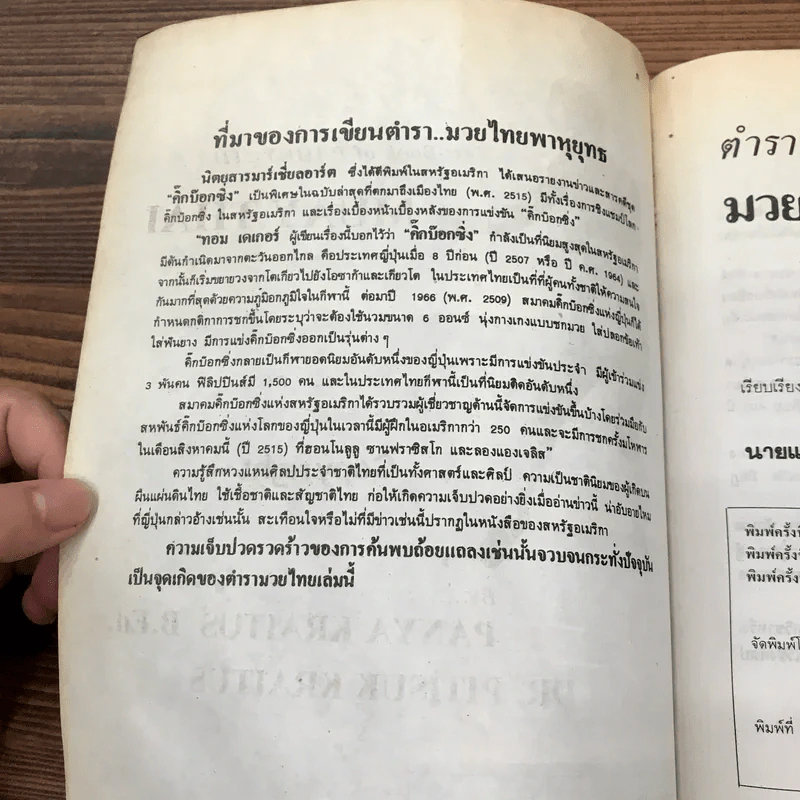 ที่มาของการเขียนตำรา..มวยไทยพาหุยุทธ
นิตยุสารมาร์เชี่ยลอาร์ต ซึ่งได้ตีพิมพ์ในสหรัฐอเมริกา ได้เสนอรายงานข่าวและสารคดีชุด
"คิ๊กบ๊อกซิ่ง" เป็นพิเศษในฉบับล่าสุดที่ตกมาถึงเมืองไทย (พ.ศ. 2515) มีทั้งเรื่องการชิงแชมป์โลก
คิ๊กบ๊อกซิ่ง ในสหรัฐอเมริกา และเรื่องเบื้องหน้าเบื้องหลังของการแข่งขัน "คิ๊กบ๊อกซิ่ง"
"ทอม เดเกอร์ ผู้เขียนเรื่องนี้บอกไว้ว่า "คิ๊กบ๊อกซิ่ง" กำลังเป็นที่นิยมสูงสุดในสหรัฐอเมริกา
มีต้นกำเนิดมาจากตะวันออกไกล คือประเทศญี่ปุ่นเมื่อ 8 ปีก่อน (ปี 2507 หรือ ปี ค.ศ. 1964) และ
จากนั้นก็เริ่มขยายวงจากโตเกียวไปยังโอซาก้าและเกียวโต ในประเทศไทยเป็นที่ที่ผู้คนทั้งชาติให้ความสนใจ
กันมากที่สุดด้วยความภูมิอกภูมิใจในกีฬานี้ ต่อมาปี 1966 (พ.ศ. 2509) สมาคมคิ๊กบ๊อกซิ่งแห่งญี่ปุ่นก็ได้
กำหนดกติกาการชกขึ้นโดยระบุว่าจะต้องใช้นวมขนาด 6 ออนซ์ นุ่งกางเกงแบบชกมวย ใส่ปลอกข้อเท้า
ใส่ฟันยาง มีการแข่งคิ๊กบ๊อกซิ่งออกเป็นรุ่นต่าง ๆ
คิ๊กบ๊อกซิ่งกลายเป็นกีฬายอดนิยมอันดับหนึ่งของญี่ปุ่นเพราะมีการแข่งขันประจำ มีผู้เข้าร่วมแข่ง
3 พันคน ฟิลิปปินส์มี 1,500 คน และในประเทศไทยกีฬานี้เป็นที่นิยมติดอันดับหนึ่ง
สมาคมคิ๊กบ๊อกซิ่งแห่งสหรัฐอเมริกาได้รวบรวมผู้เชี่ยวชาญด้านนี้จัดการแข่งขันขึ้นบ้างโดยร่วมมือกับ
สหพันธ์คิ๊กบ๊อกซิ่งแห่งโลกของญี่ปุ่นในเวลานี้มีผู้ฝึกในอเมริกากว่า 250 คนและจะมีการชกครั้งมโหฬาร
ในเดือนสิงหาคมนี้ (ปี 2515) ที่ฮอนโนลูลู ซานฟราซิสโก และลองแองเจลิส"
ความรู้สึกหวงแหนศิลปประจำชาติไทยที่เป็นทั้งศาสตร์และศิลป์ ความเป็นชาตินิยมของผู้เกิดบน
ผืนแผ่นดินไทย ใช้เชื้อชาติและสัญชาติไทย ก่อให้เกิดความเจ็บปวดอย่างยิ่งเมื่ออ่านข่าวนี้ น่าอับอายไหม
ที่ญี่ปุ่นกล่าวอ้างเช่นนั้น สะเทือนใจหรือไม่ที่มีข่าวเช่นนี้ปรากฏในหนังสือของสหรัฐอเมริกา
ความเจ็บปวดรวดร้าวของการค้นพบถ้อยแถลงเช่นนั้นจวบจนกระทั่งปัจจุบัน
เป็นจุดเกิดของตำรามวยไทยเล่มนี้
PANYA KRAITUS B.Ed.
DR. PITISUK KRAITUS
ตำรา
มวย
เรียบเรียง
นายแ
พิมพ์ครั้งที่
พิมพ์ครั้งที่
พิมพ์ครั้ง
จัดพิมพ์โ
พิมพ์ที่